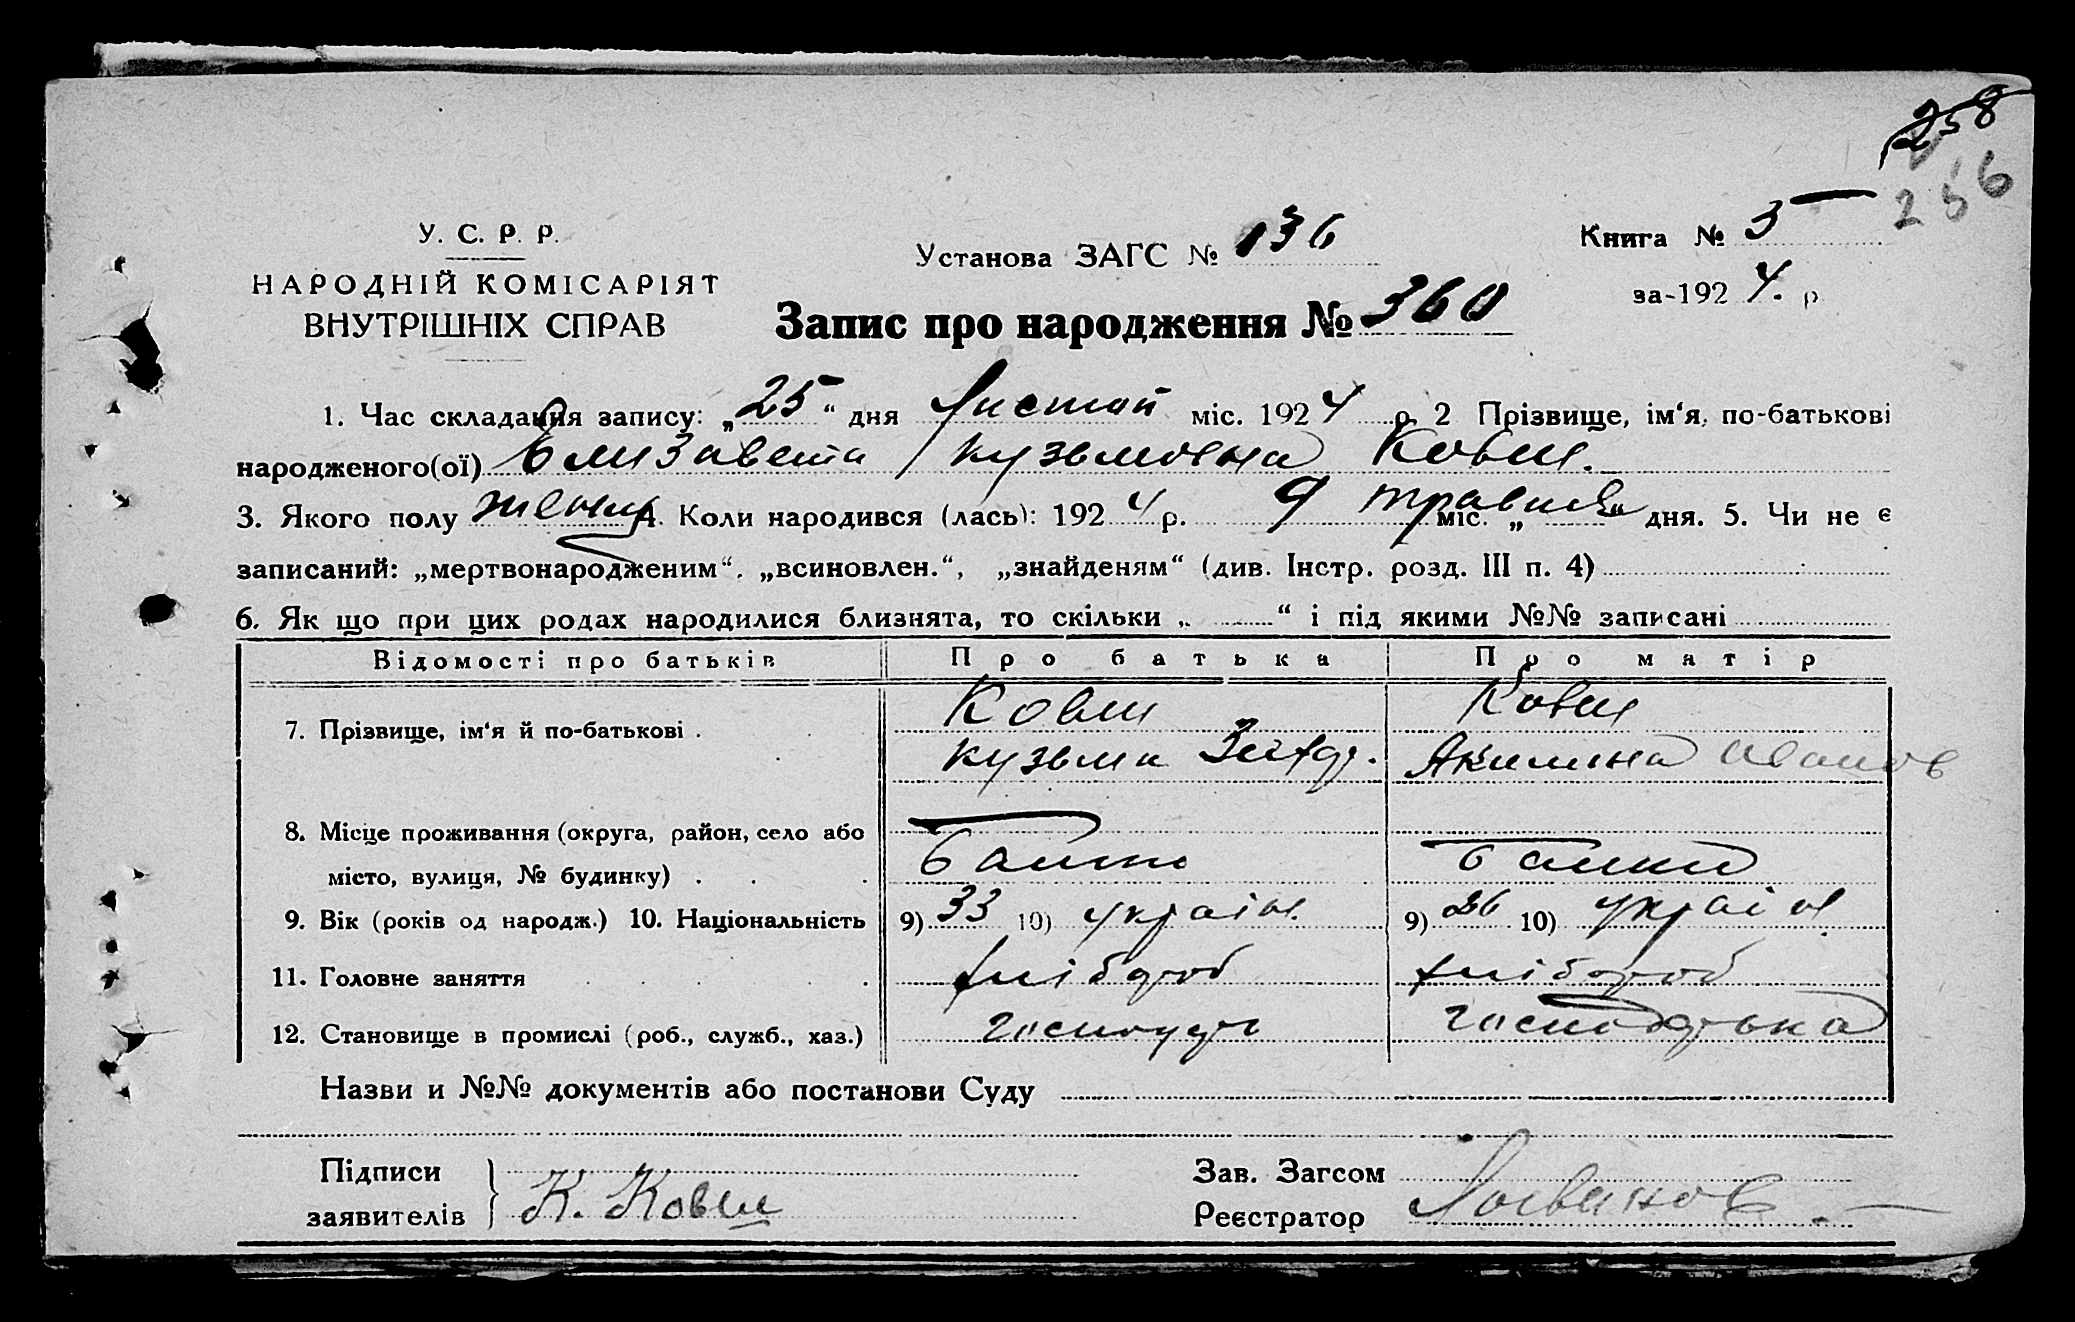 258
256
У. С. Р. Р.
НАРОДНІЙ КОМІСАРІЯТ
ВНУТРІШНІХ СПРАВ
Установа ЗАГС № 136
Книга № 5
за-1924 р
Запис про народження № 360
1. Час складання запису: „25“ дня Листоп міс. 1924 р. 2 Прізвище, ім‘я, по-батькові
народженого(ої) Елизавета Кузьмовна
3. Якого полу женщ 4. Коли народився (лась): 1924 р. 9 травня міс. „ “ дня. 5. Чи не є
записаний: „мертвонародженим“, „всиновлен.“, „знайденям“ (див. Інстр. розд. III п. 4)
6. Як що при цих родах народилися близнята, то скільки „ “ і під якими №№ записані
Відомості про батьків Про батька Про матір
7. Прізвище, ім‘я й по-батькові .
Кузьма Акилина Иванов
8. Місце проживання (округа, район, село або
місто, вулиця, № будинку) . . .
9. Вік (років од народж.) 10. Національність 9) 33 10) україн. 9) 26 10) україн.
11. Головне заняття хлібороб хлібороб
12. Становище в промислі (роб., служб., хаз.) господарь господарька
Назви и №№ документів або постанови Суду
Підписи
заявителів К.
Зав. Загсом
Реєстратор